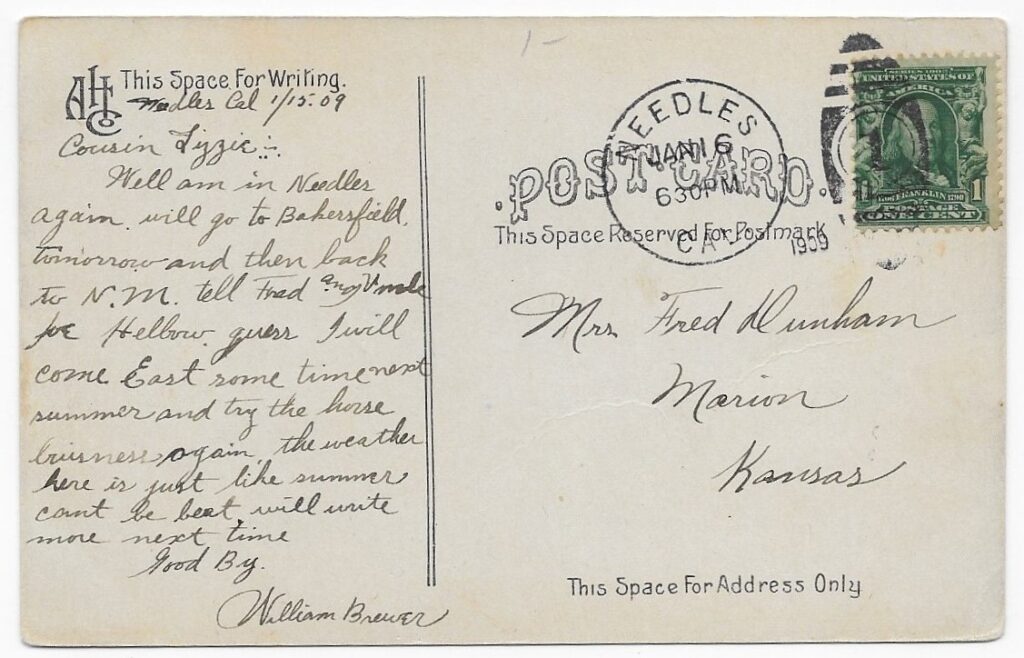 AHC Co
This Space For Writing.
Needles Cal 1/15.09
Cousin Lizzie:-
Well am in Needles
again. will go to Bakersfield.
tomorrow and then back
to N.M. tell Fred and Uncle
Joe Hellow. guess I will
come East some time next
summer and try the horse
buisness again. the weather
here is just like summer
cant be beat. will write
more next time
Good By.
William Brewer
1-
POST CARD.
This Space Reserved For Postmark
NEEDLES
JAN 16
630PM
CAL.
1909
SERIES 1902
UNITED STATES OF
AMERICA
1
FRANKLIN
POSTAGE
ONE CENT
Mrs Fred Dunham
Marion
Kansas
This Space For Address Only